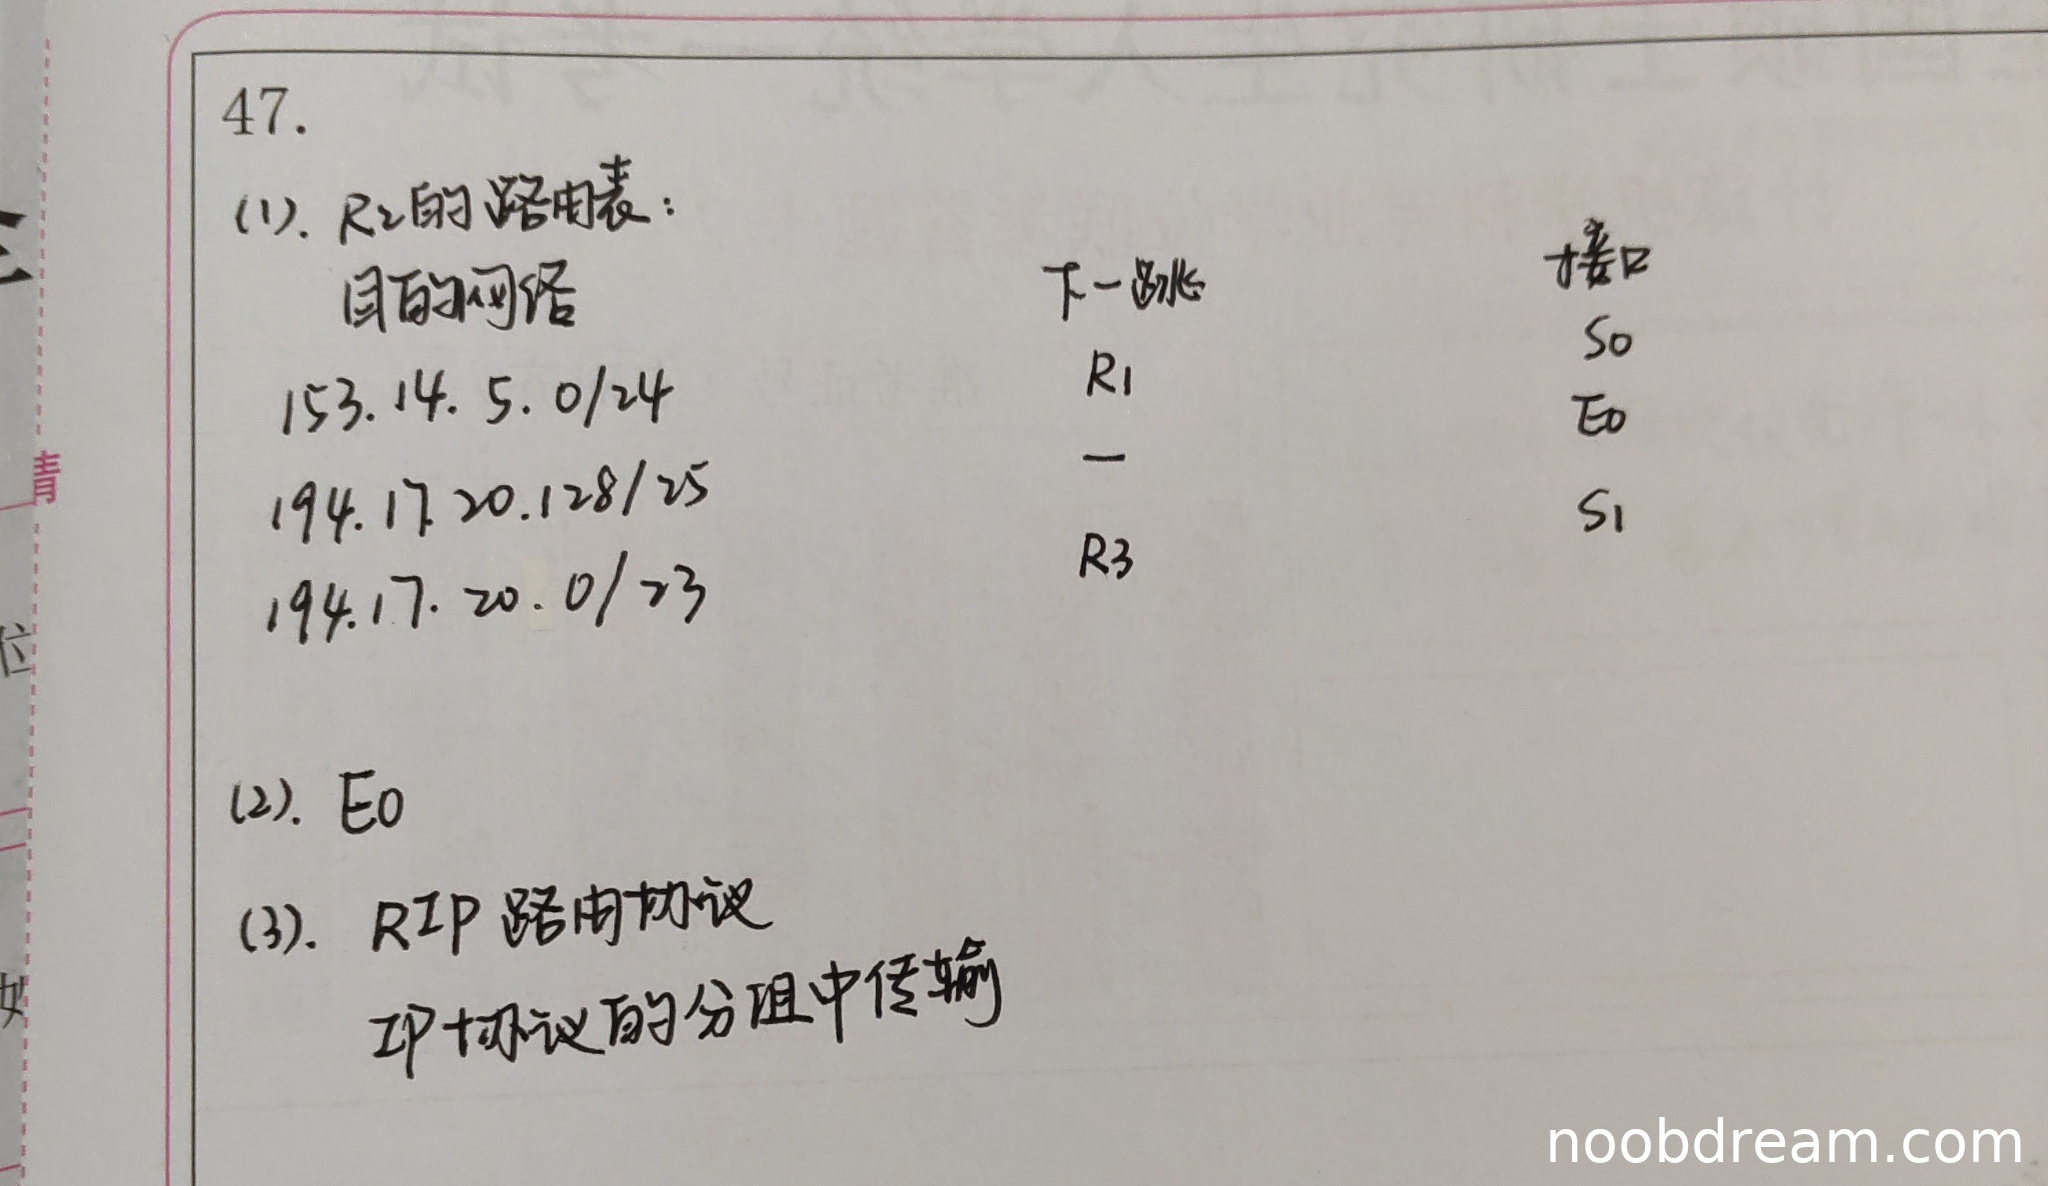 47.
(1). R2的路由表:
目的网络 下一跳 接口
153.14.5.0/24 R1 S0
194.17.20.128/25 — E0
194.17.20.0/23 R3 S1
(2). E0
(3). RIP 路由协议
IP协议的分组中传输
请
位
noobdream.com